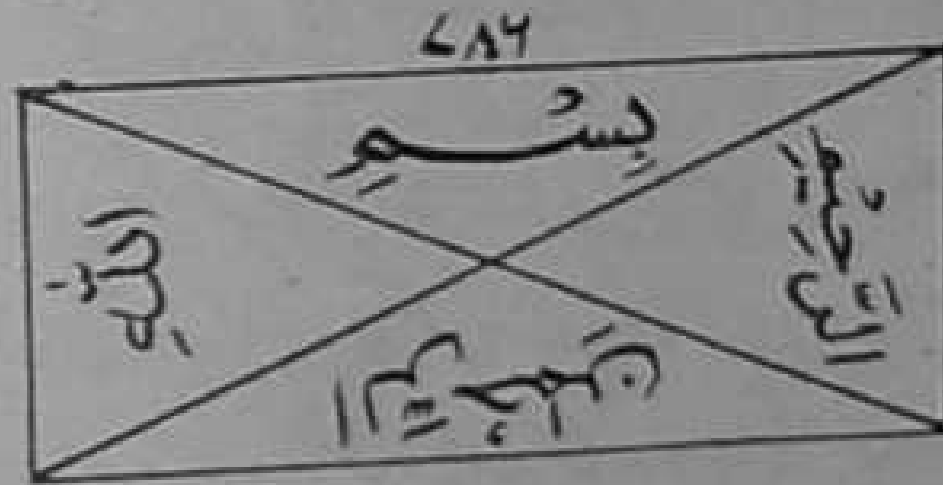 ٧٨٦
بِسْمِ
اللّٰهِ
الرَّحْمٰنِ
الرَّحِيْمِ